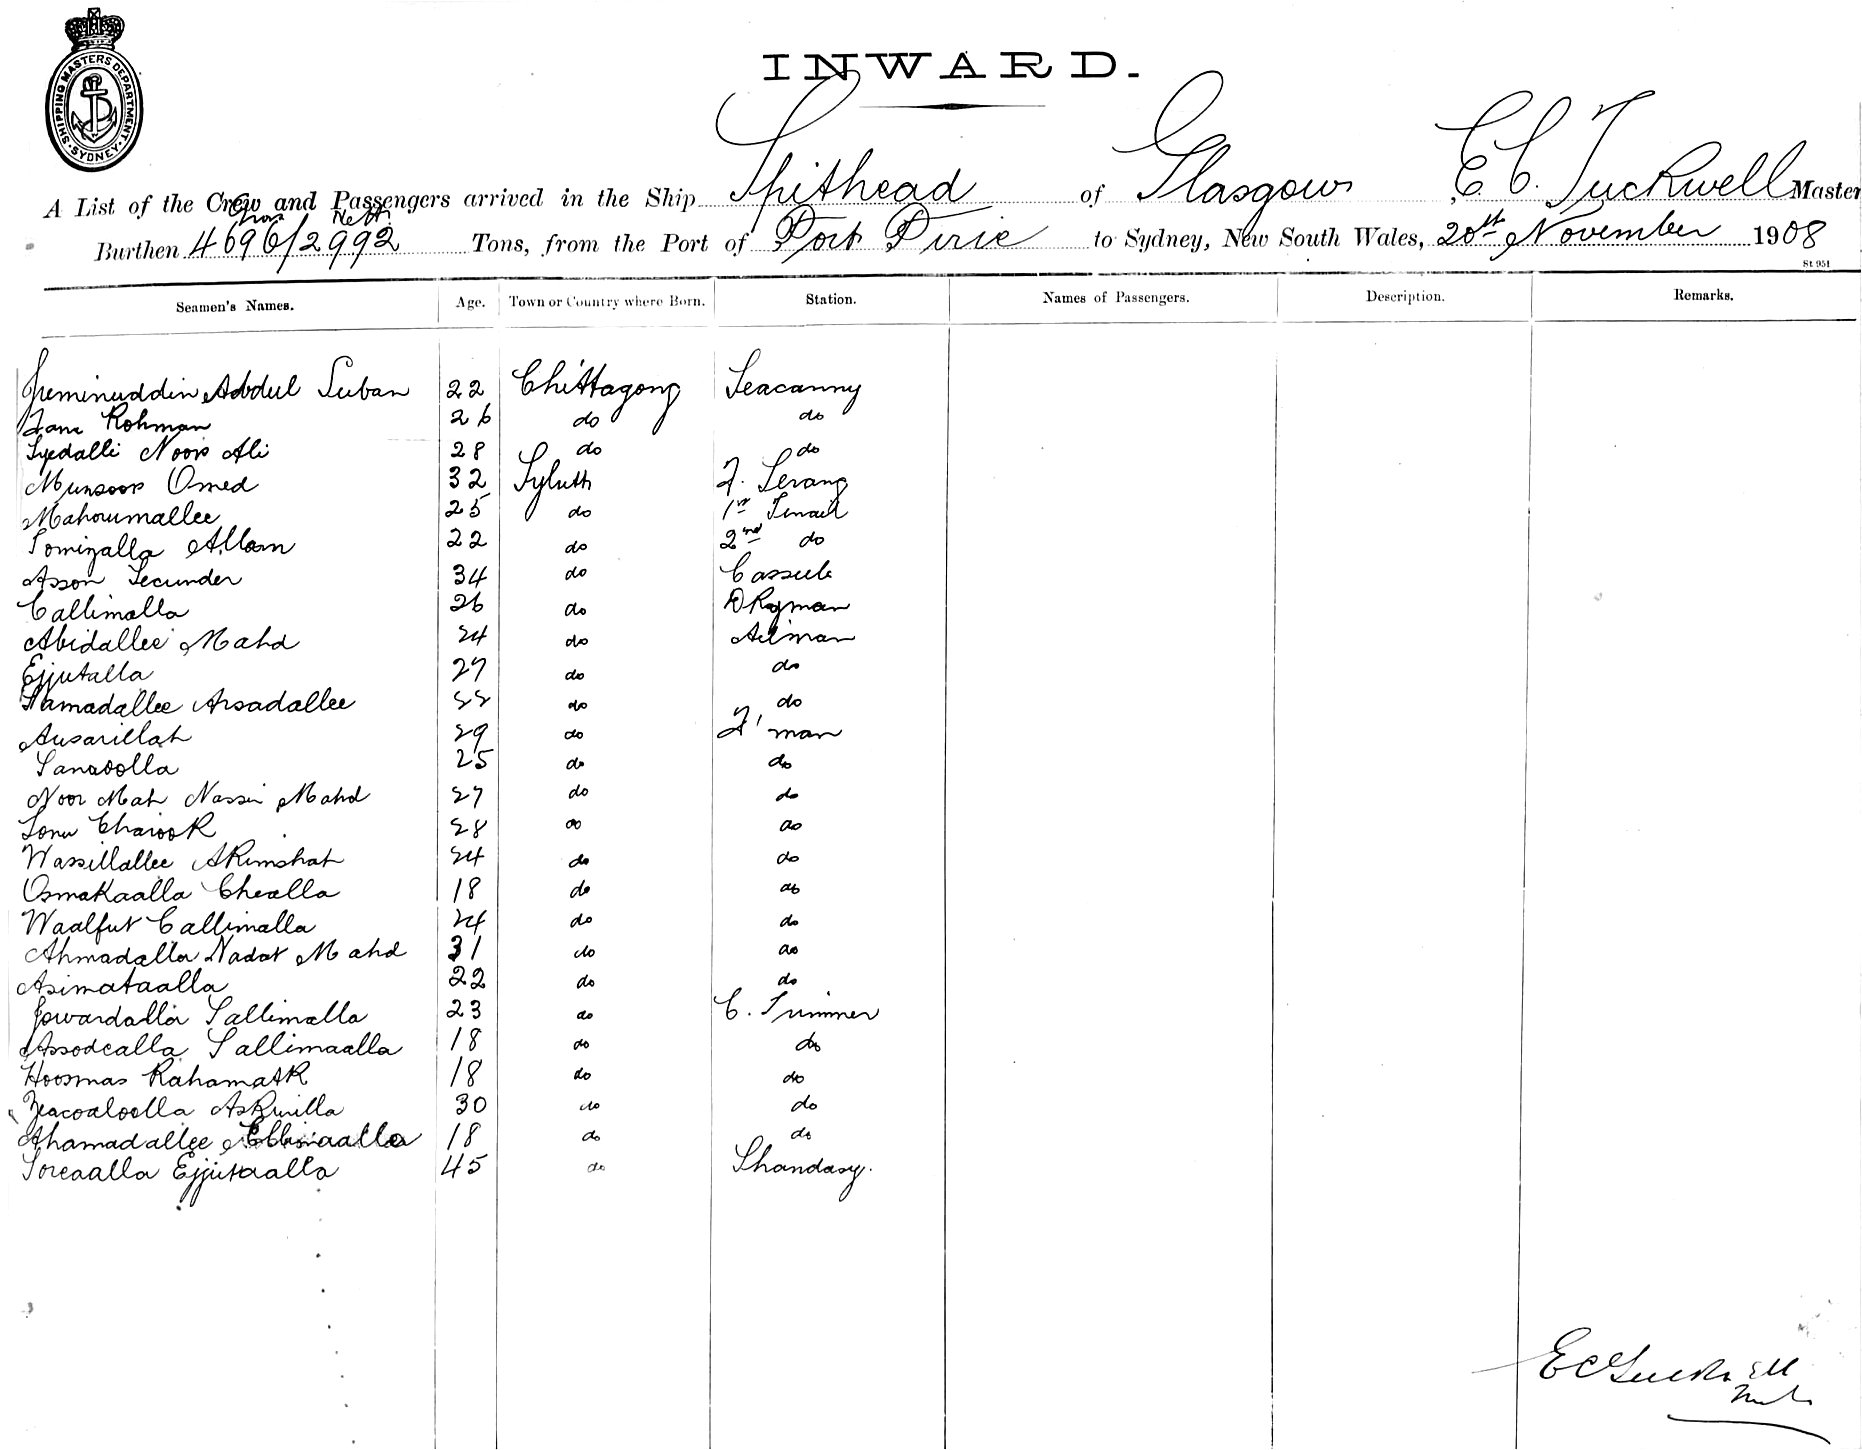 SHIPPING MASTERS DEPARTMENT. SYDNEY.
INWARD.
A List of the Crew and Passengers arrived in the Ship Spithead of Glasgow, E. C. Tuckwell Master
Gross Nett
Burthen 4696/2992 Tons, from the Port of Port Pirie to Sydney, New South Wales, 20st November 1908
St 951
Seamen's Names. Age. Town or Country where Born. Station. Names of Passengers. Description. Remarks.
Abdul Suban 22 Chittagong Seacunny
Rohman 26 do do
Syedalli Noor Ali 28 do do
Munsoor Omed 32 Syluth F. Serang
Mahoumallee 25 do 1st
Somizalla Allom 22 do 2nd do
Asson Secunder 34 do Cassub
Callimalla 26 do DKyman
Abidallee Mahd 24 do Ailman
Ejjutalla 27 do do
Samadallee Arsadallee 22 do do
Ausarillah 29 do F'man
Sanaoolla 25 do do
Noor Mah Nassi Mahd 27 do do
Sonu 28 do do
Wassillallee AKimshah 24 do do
OsmaKaalla Chealla 18 do do
Waalfut Callimalla 24 do do
Ahmadalla Nadat Mahd 31 do do
Asimataalla 22 do do
Jowardalla Sallimalla 23 do C. Trimmer
Assodcalla Sallimaalla 18 do do
Hoosmas 18 do do
30 do do
Ahamadallee 18 do do
Soreaalla Ejjutaalla 45 do Bhandary.
E C Tuckwell